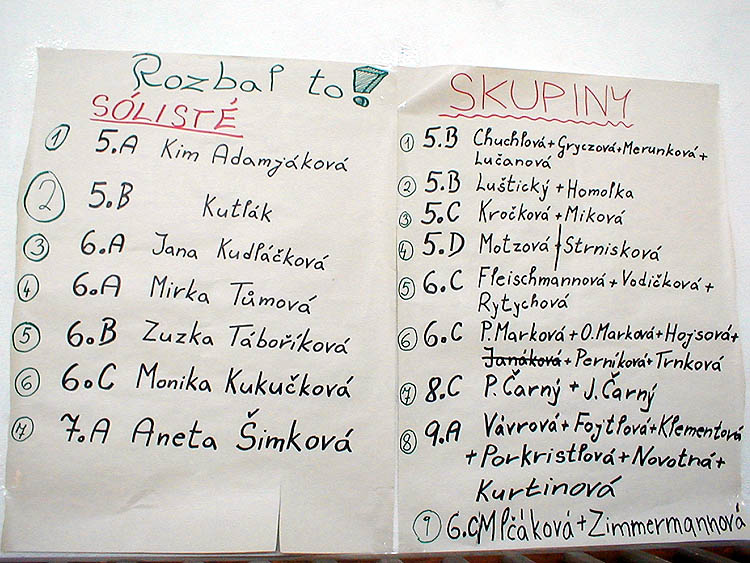 Rozbal to!
SÓLISTÉ
1 5.A Kim Adamjáková
2 5.B Kutlák
3 6.A Jana Kudláčková
4 6.A Mirka Tůmová
5 6.B Zuzka Táboříková
6 6.C Monika Kukučková
7 7.A Aneta Šimková
SKUPINY
1 5.B Chuchlová+Gryczová+Merunková+
Lučanová
2 5.B Luštický+Homolka
3 5.C Kročková+Miková
4 5.D Motzová+Strnisková
5 6.C Fleischmannová+Vodičková+
Rytychová
6 6.C P.Marková+O.Marková+Hojsová+
Janáková+Perníková+Trnková
7 8.C P.Čarný+J.Čarný
8 9.A Vávrová+Fojtlová+Klementová
+Porkristlová+Novotná+
Kurtinová
9 6.C Mlčáková+Zimmermannová